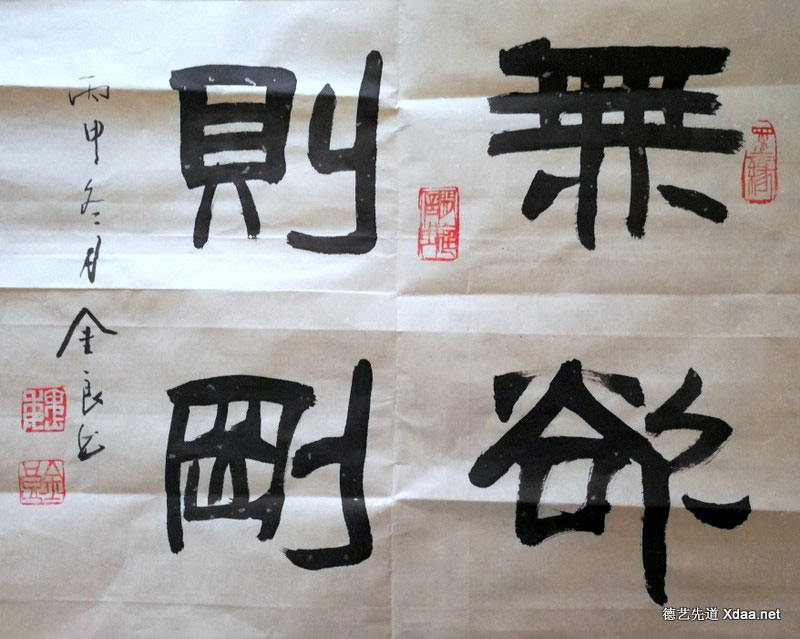 無欲
則剛
丙申冬二月
金良书
德艺先道 Xdaa.net